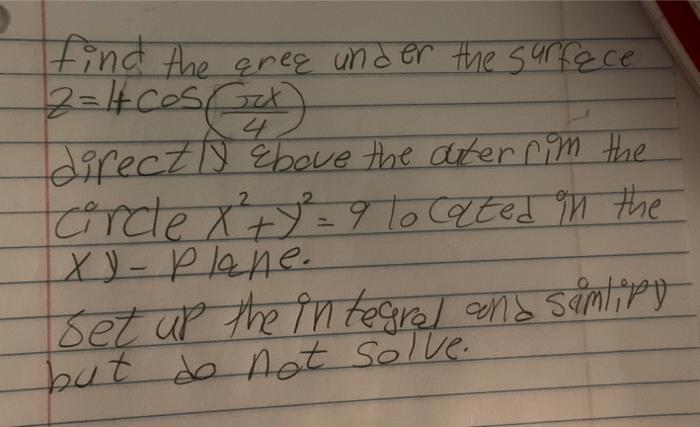 find the area under the surface
z=4cos(πx/4)
directly above the outer rim the
circle x²+y²=9 located in the
xy-plane.
set up the integral and simlify
but do not solve.